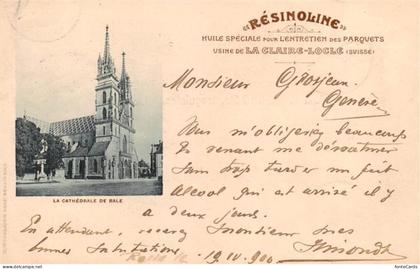 "RÉSINOLINE"
HUILE SPÉCIALE POUR L'ENTRETIEN DES PARQUETS
USINE DE LA CLAIRE-LOCLE (SUISSE)
Monsieur Grosjean
Genève
Vous m'obligeriez beaucoup
en venant me dénaturer
sans trop tarder un fût
alcool qui est arrivé il y
a deux jours.
En attendant, recevez Monsieur mes
bonnes salutations
19 IV 900
LA CATHÉDRALE DE BALE